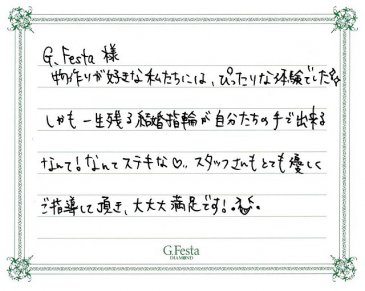 G.Festa 様
物作りが好きな私たちには、ぴったりな体験でした☆
しかも一生残る結婚指輪が自分たちの手で出来る
なんて!なんてステキな♡..スタッフさんもとても優しく
ご指導して頂き、大大大満足です!
G.Festa
DIAMOND